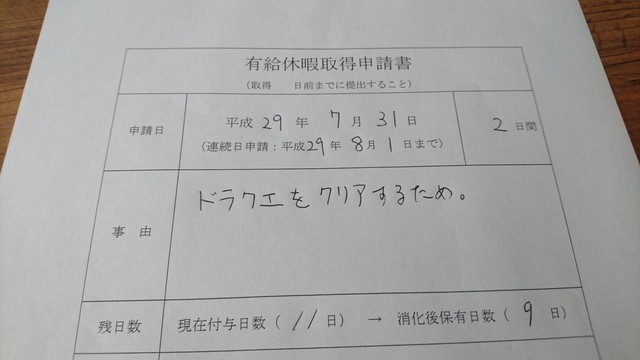 有給休暇取得申請書
(取得　　日前までに提出すること)
申請日
平成 29 年 7 月 31 日
(連続日申請:平成29年 8月 1 日まで)
2 日間
事 由
ドラクエをクリアするため。
残日数
現在付与日数( 11 日) → 消化後保有日数( 9 日)